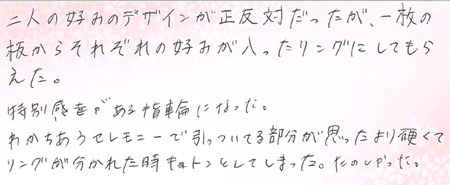 二人の好みのデザインが正反対だったが、一枚の
板からそれぞれの好みが入ったリングにしてもら
えた。
特別感がある指輪になった。
わかちあうセレモニーで引っついてる部分が思ったより硬くて
リングが分かれた時キョトンとしてしまった。たのしかった。